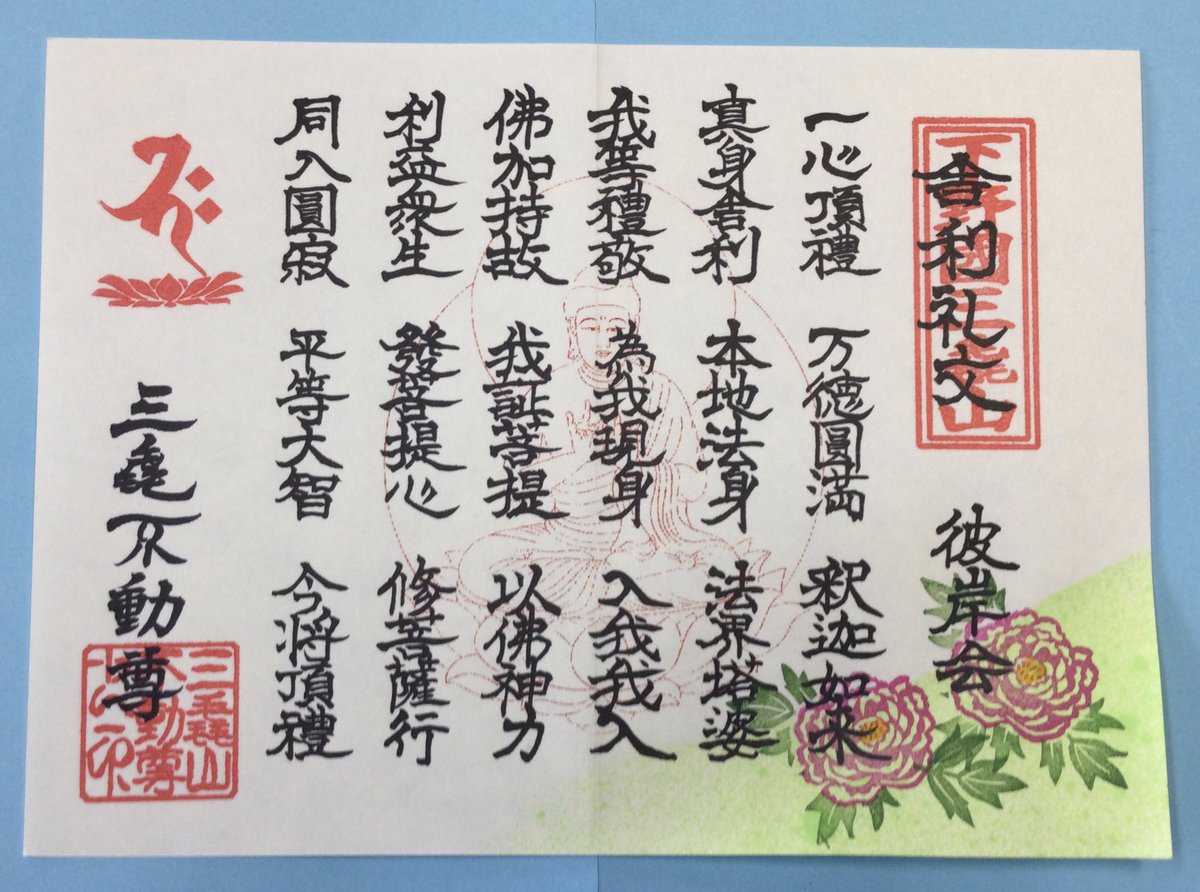 舎利礼文 彼岸会
一心頂禮 万徳圓満 釈迦如来
真身舎利 本地法身 法界塔婆
我等禮敬 為我現身 入我我入
佛加持故 我証菩提 以佛神力
利益衆生 發菩提心 修菩薩行
同入圓寂 平等大智 今将頂禮
三亀不動尊